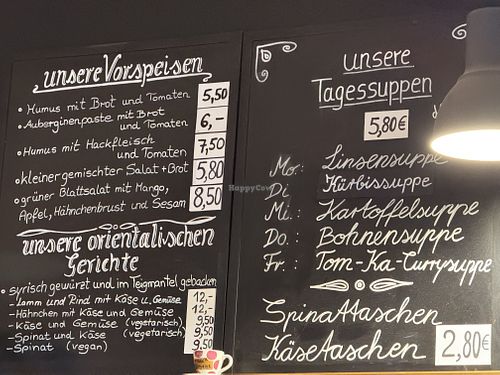 unsere Vorspeisen
• Humus mit Brot und Tomaten 5,50
• Auberginenpaste mit Brot
und Tomaten 6,-
• Humus mit Hackfleisch
und Tomaten 7,50
• kleiner gemischter Salat + Brot 5,80
• grüner Blattsalat mit Mango,
Apfel, Hähnchenbrust und Sesam 8,50
unsere orientalischen
Gerichte
• syrisch gewürzt und im Teigmantel gebacken
- Lamm und Rind mit Käse u. Gemüse 12,-
- Hähnchen mit Käse und Gemüse 12,-
- Käse und Gemüse (vegetarisch) 9,50
- Spinat und Käse (vegetarisch) 9,50
- Spinat (vegan) 9,50
unsere
Tagessuppen
5,80€
Mo: Linsensuppe
Di Kürbissuppe
Mi.: Kartoffelsuppe
Do.: Bohnensuppe
Fr.: Tom-Ka-Currysuppe
Spinattaschen
Käsetaschen 2,80€
HappyCow